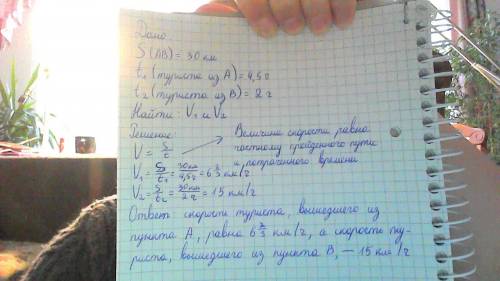 Дано:
S (AB) = 30 км
t₁ (туриста из A) = 4,5 ч
t₂ (туриста из B) = 2 ч
Найти: V₁ и V₂
Решение:
V = S/t
Величина скорости равна
частному пройденного пути
и потраченного времени
V₁ = S/t₁ = 30км/4,5ч = 6 2/3 км/ч
V₂ = S/t₂ = 30км/2ч = 15 км/ч
Ответ скорость туриста, вышедшего из
пункта A, равна 6 2/3 км/ч, а скорость ту-
риста, вышедшего из пункта B, — 15 км/ч